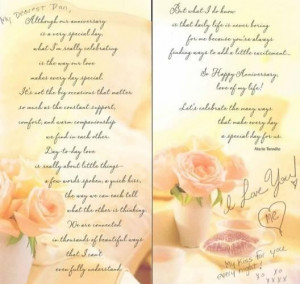 My Dearest Dan,
Although our anniversary
is a very special day,
what I'm really celebrating
is the way our love
makes every day special.
It's not the big occasions that matter
so much as the constant support,
comfort, and warm companionship
we find in each other.
Day-to-day love
is really about little things—
a few words spoken, a quick hug,
the way we can each tell
what the other is thinking.
We are connected
in thousands of beautiful ways
that I can't
even fully understand.
But what I do know
is that daily life is never boring
for me because you're always
finding ways to add a little excitement...
So Happy Anniversary,
love of my life!
Let's celebrate the many ways
that make every day
a special day for us.
I Love You!
Me
My Kiss for you
every night!
XO XO
XXXX